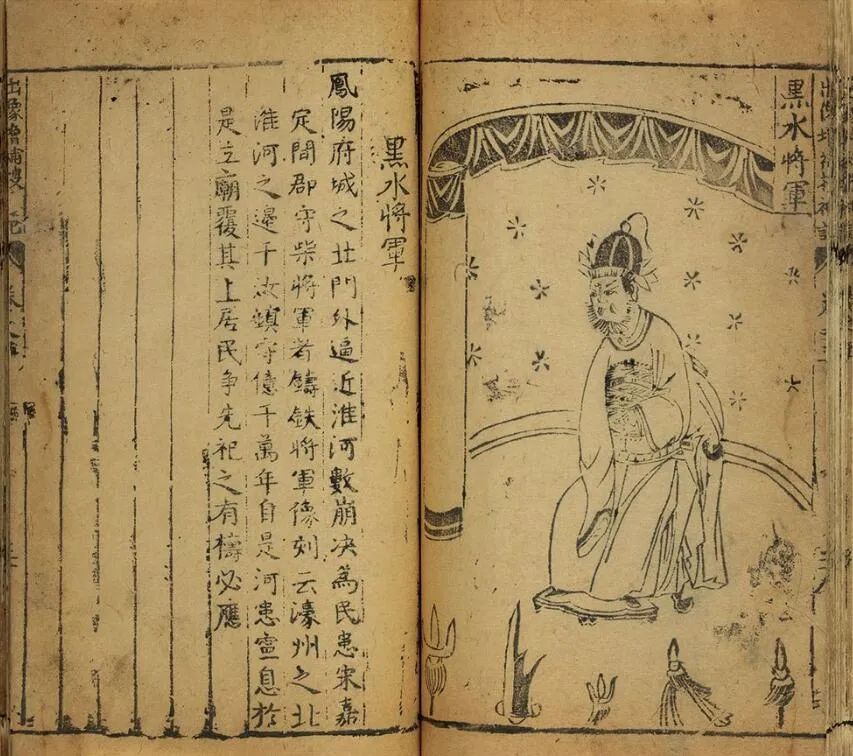 黑水將軍
黑水將軍
鳳陽府城之北門外逼近淮河數崩決為民患宋嘉
定間郡守柴將軍者鑄鉄將軍像刻云濠州之北
淮河之邊千汝鎮守億千萬年自是河患寧息於
是立廟覆其上居民爭先祀之有禱必應
出像增補搜